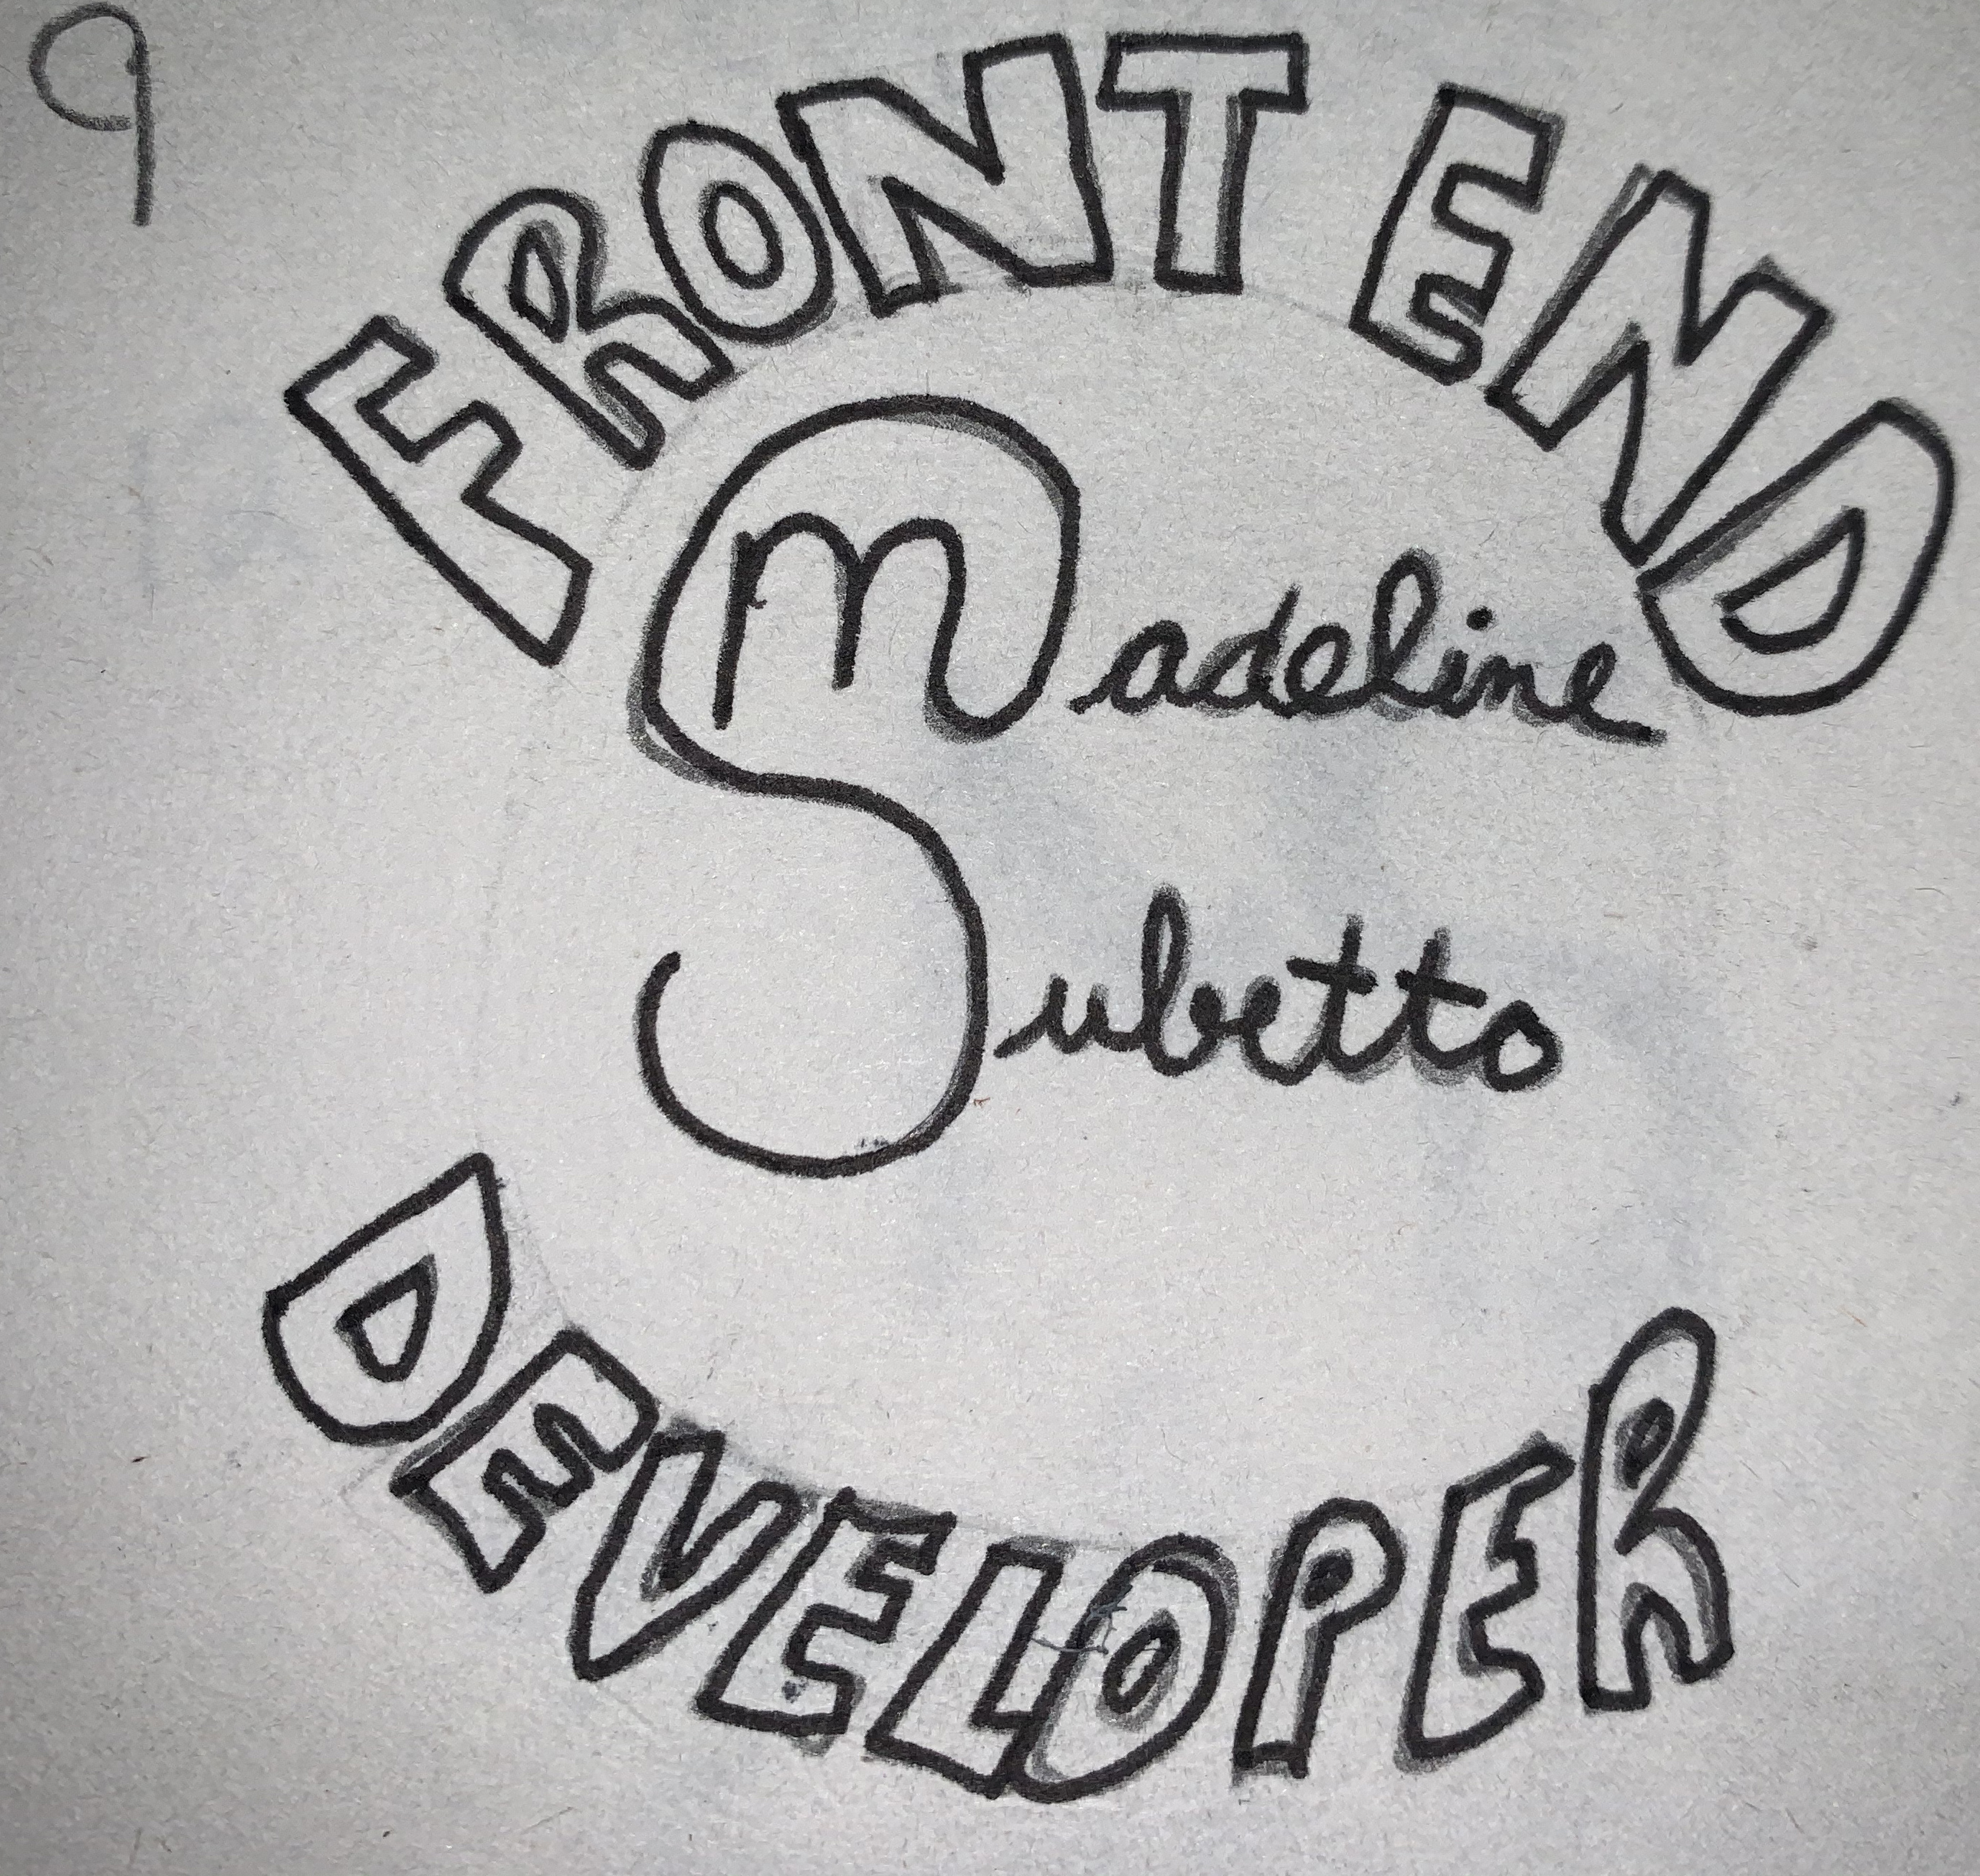 9
FRONT END
Madeline
Subetto
DEVELOPER